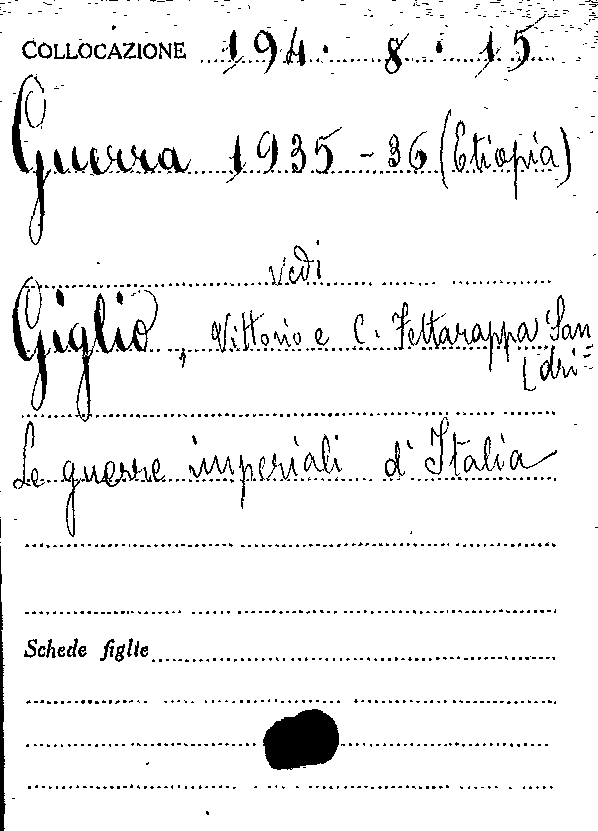 COLLOCAZIONE 194. 8. 15
Guerra 1935-36 (Etiopia)
vedi
Giglio, Vittorio e C. Fettarappa San
[dri=
Le guerre imperiali d'Italia
Schede figlie